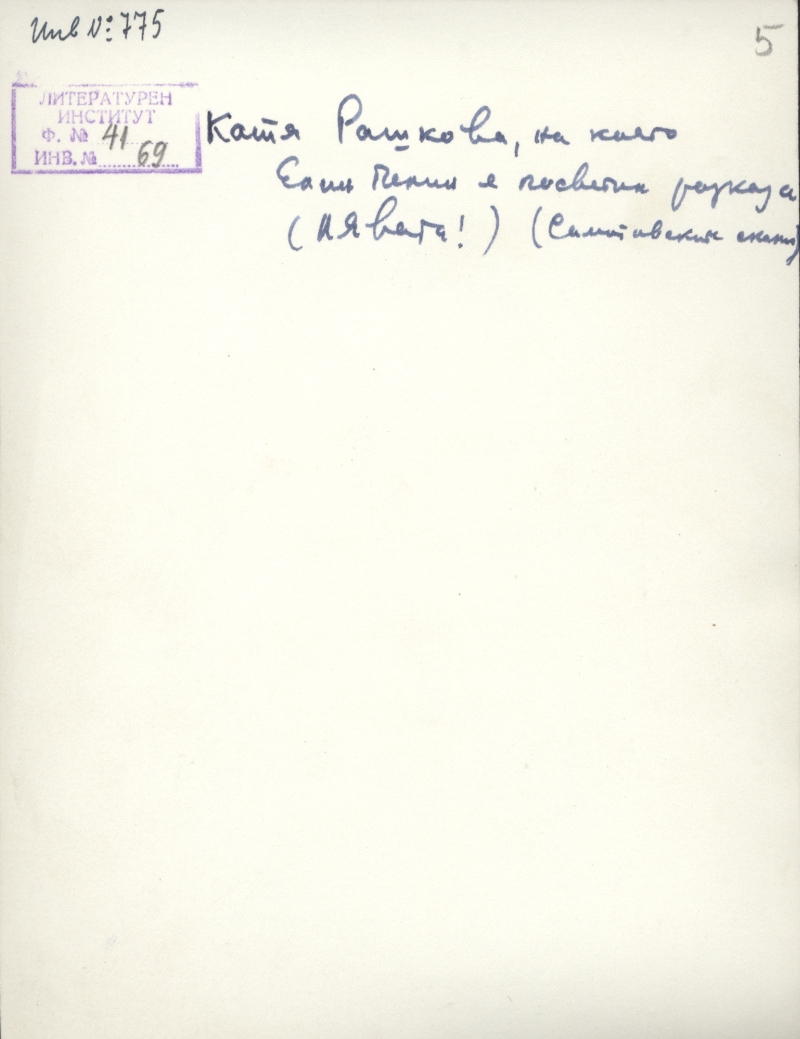 Инв №: 775
5
ЛИТЕРАТУРЕН
ИНСТИТУТ
Ф. № 41
ИНВ. № 69
Катя Рашкова, на която
Елин Пелин е посветил разказа
(Нявга!) (Самотовските